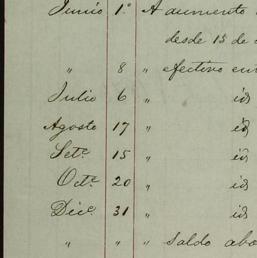 Junio 1.º A aumento
desde 15 de
" 8 " efectivo en
Julio 6 " id
Agosto 17 " id
Set.e 15 " id
Oct.e 20 " id
Dic.e 31 " id
" " " Saldo